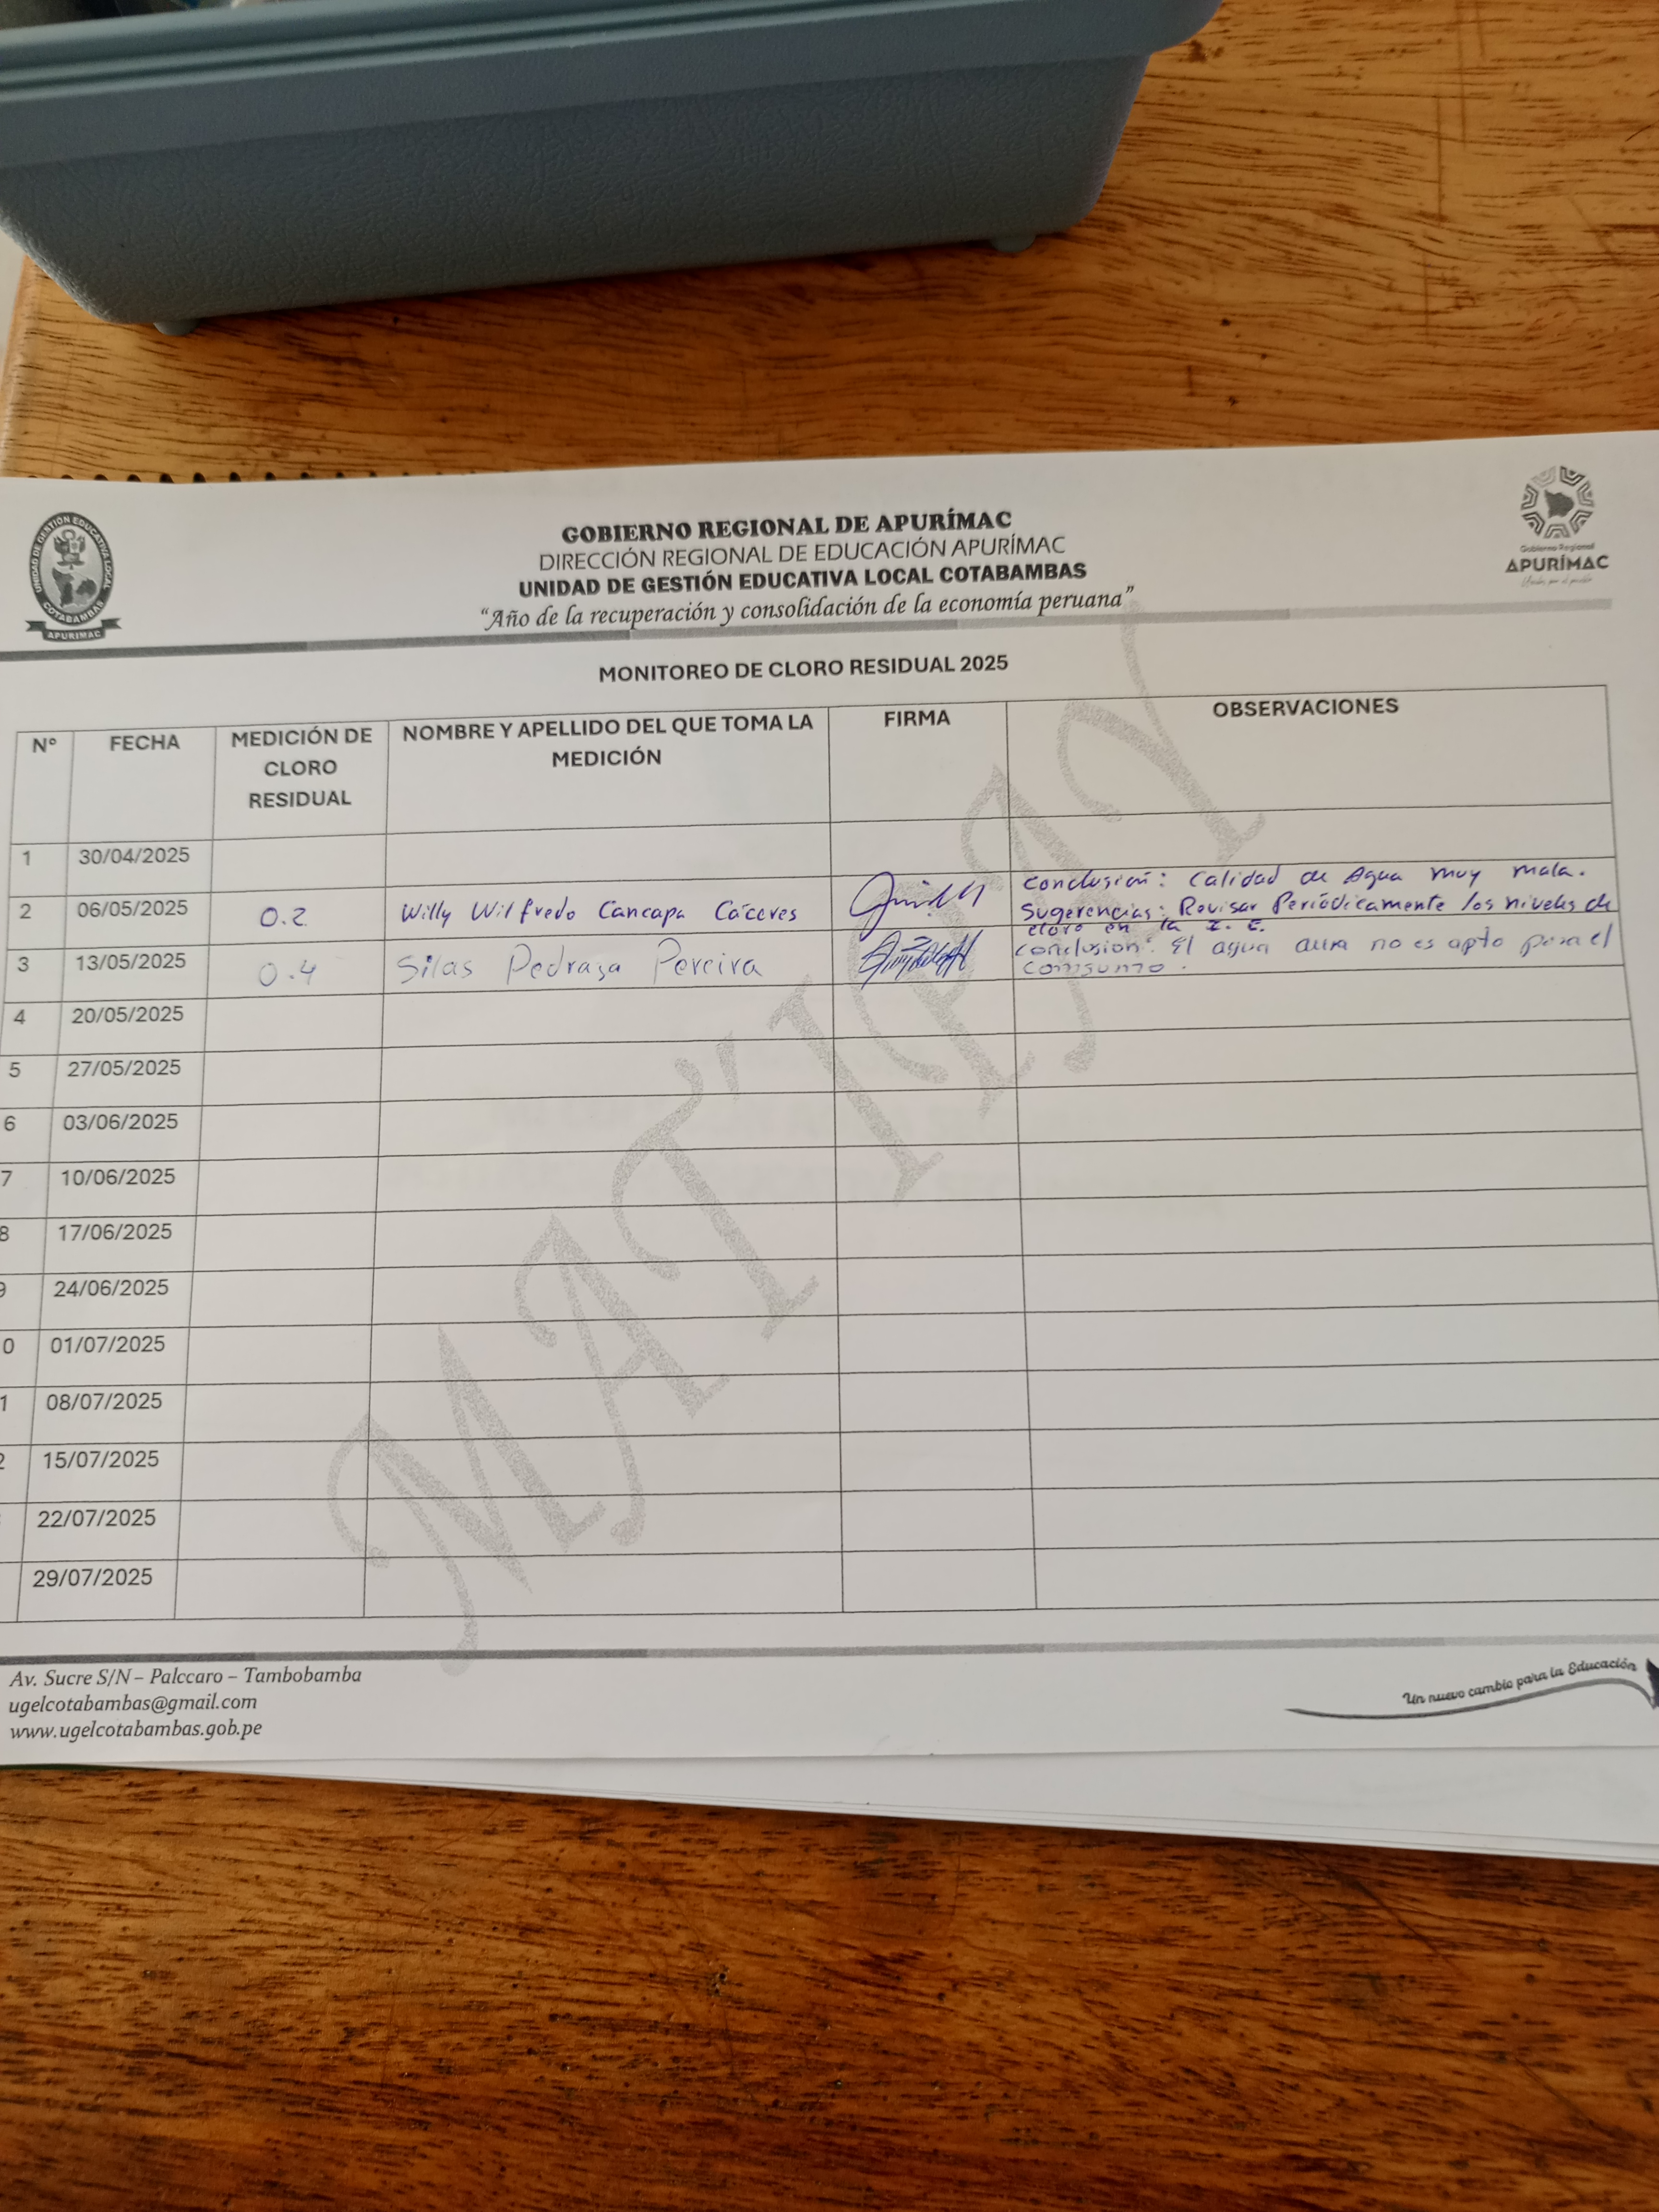 UNIDAD DE GESTIÓN EDUCATIVA LOCAL
COTABAMBAS
APURIMAC
GOBIERNO REGIONAL DE APURÍMAC
DIRECCIÓN REGIONAL DE EDUCACIÓN APURÍMAC
UNIDAD DE GESTIÓN EDUCATIVA LOCAL COTABAMBAS
"Año de la recuperación y consolidación de la economía peruana"
Gobierno Regional
APURÍMAC
MONITOREO DE CLORO RESIDUAL 2025
N° FECHA MEDICIÓN DE CLORO RESIDUAL NOMBRE Y APELLIDO DEL QUE TOMA LA MEDICIÓN FIRMA OBSERVACIONES
1 30/04/2025
2 06/05/2025 0.2 Willy Wilfredo Cancapa Cáceres Conclusión: Calidad de Agua muy mala.
Sugerencias: Revisar Periódicamente los niveles de
cloro en la I. E.
3 13/05/2025 0.4 Silas Pedraza Pereira conclusion: El agua aura no es apto para el
comsumo.
4 20/05/2025
5 27/05/2025
6 03/06/2025
7 10/06/2025
8 17/06/2025
9 24/06/2025
0 01/07/2025
1 08/07/2025
2 15/07/2025
22/07/2025
29/07/2025
Av. Sucre S/N – Palccaro – Tambobamba
ugelcotabambas@gmail.com
www.ugelcotabambas.gob.pe
Un nuevo cambio para la Educación